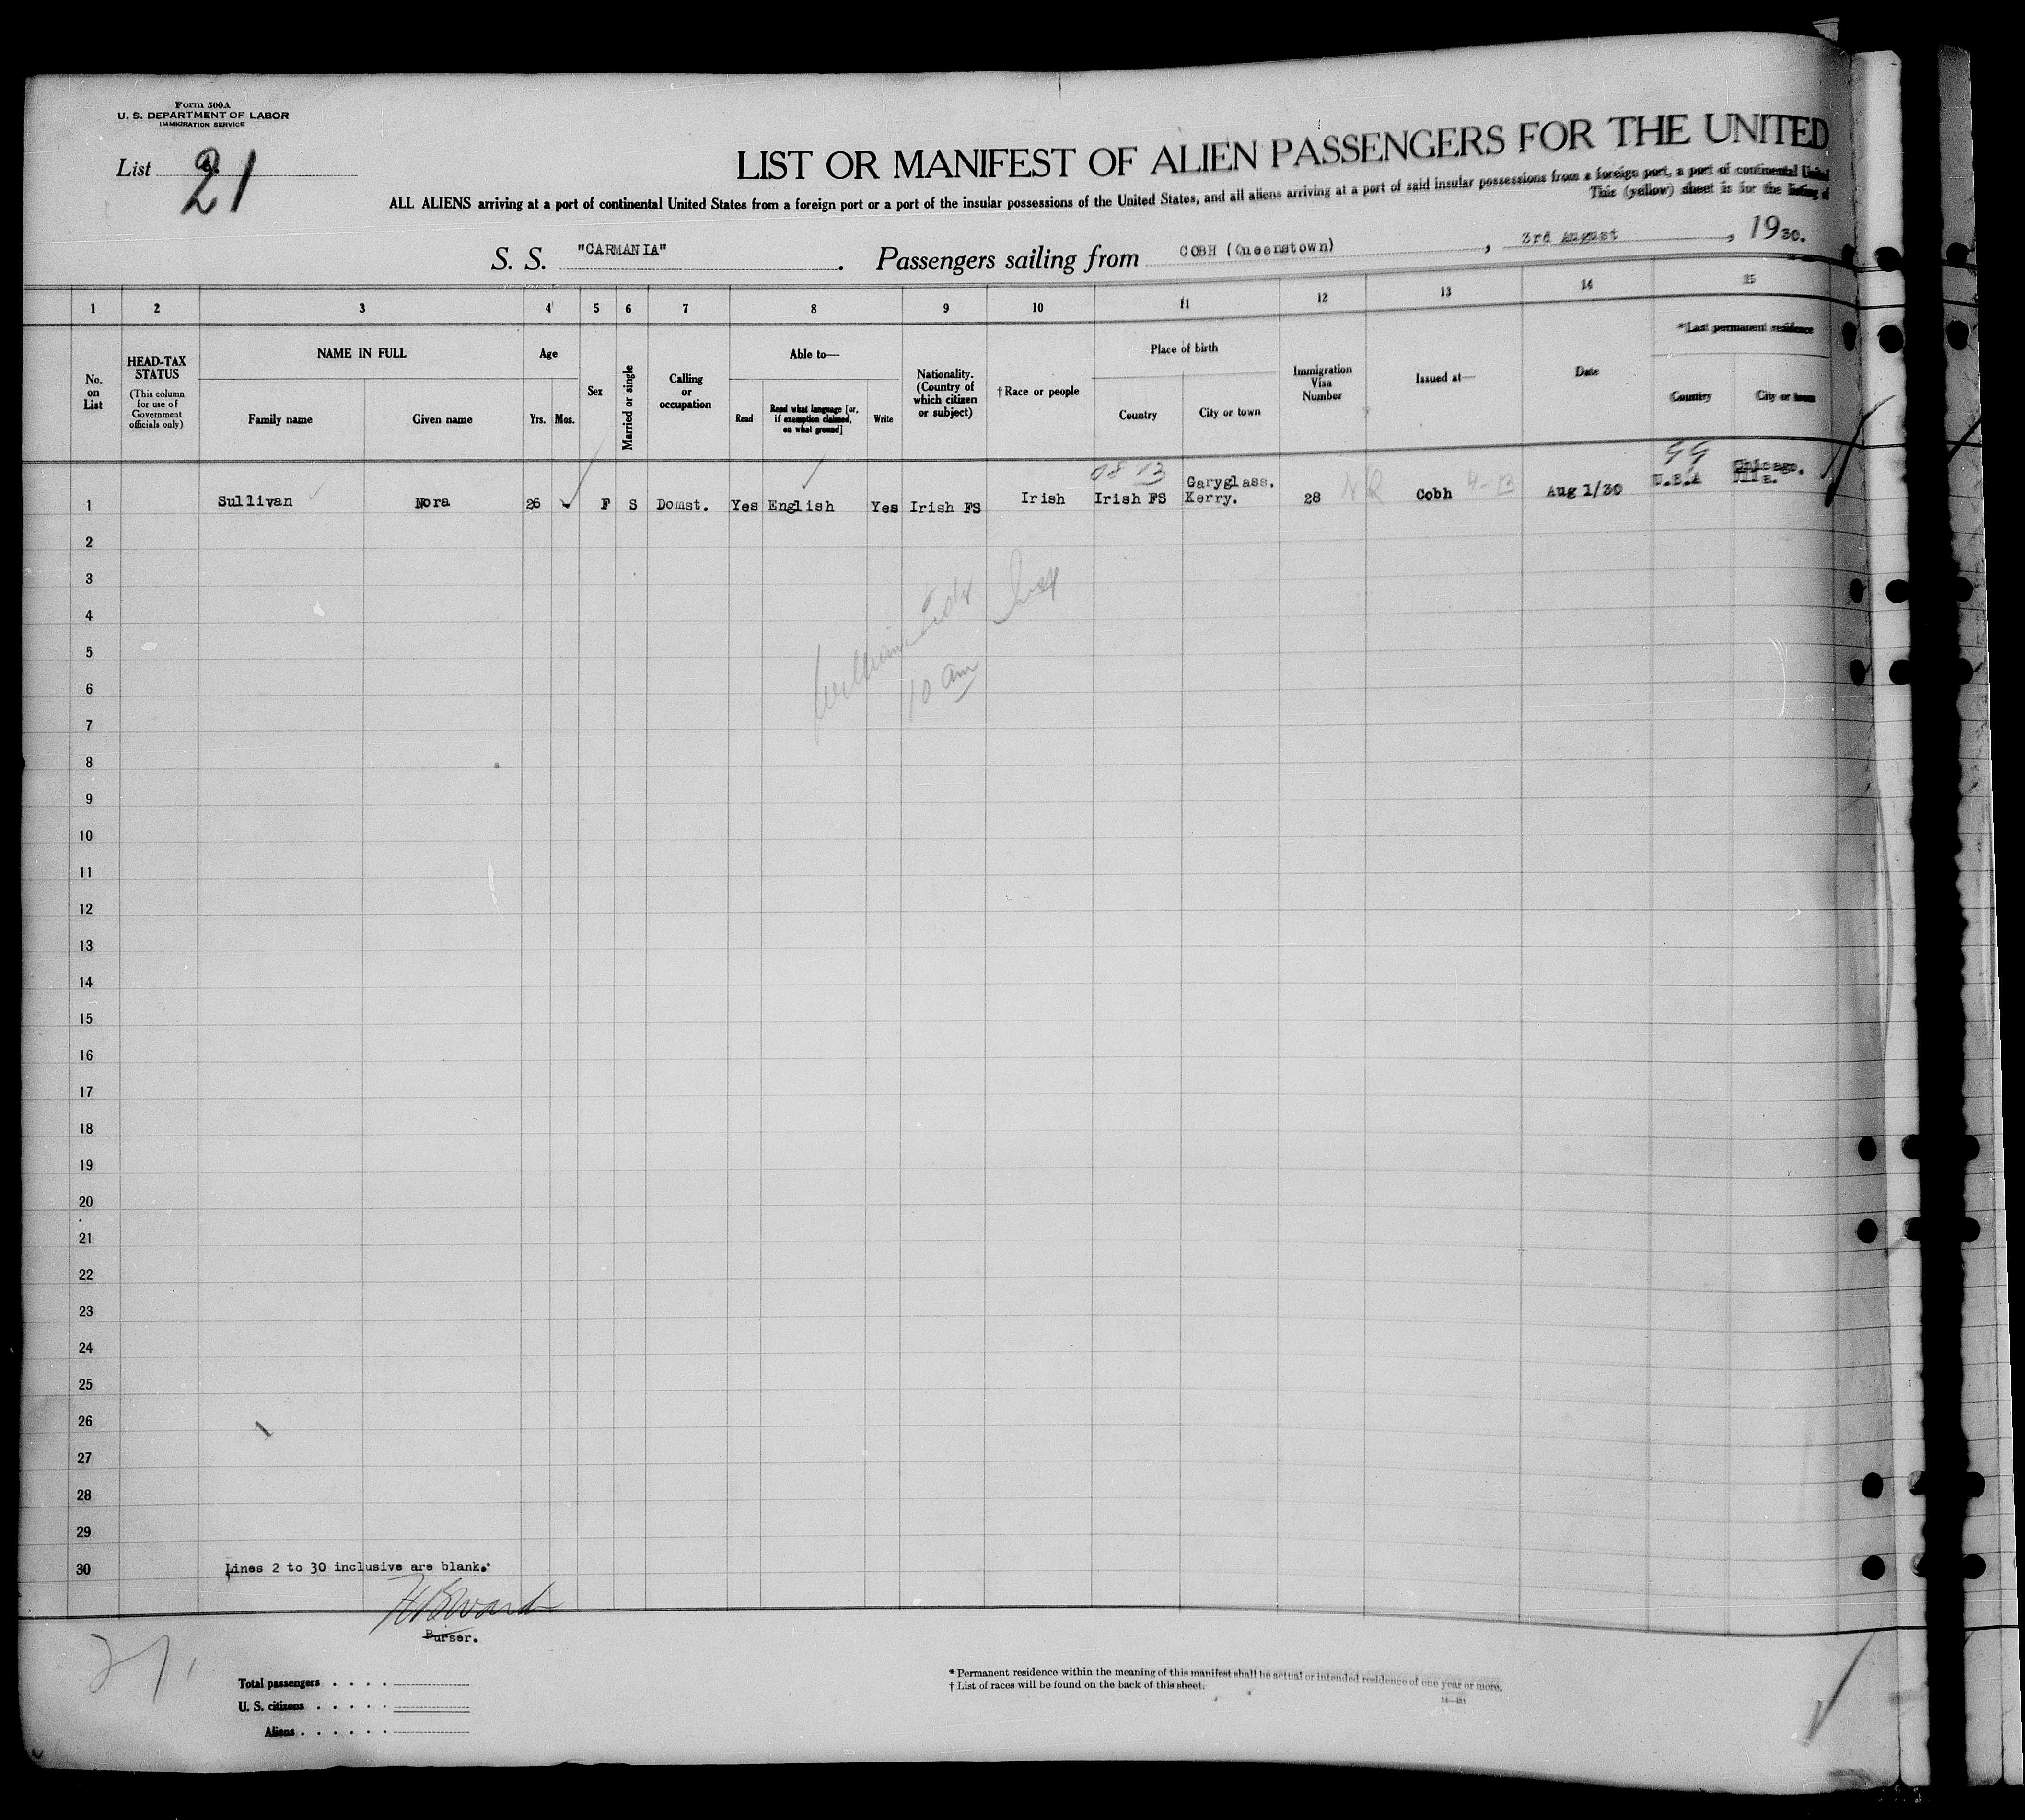 Form 500A
U. S. DEPARTMENT OF LABOR
IMMIGRATION SERVICE
List 21
LIST OR MANIFEST OF ALIEN PASSENGERS FOR THE UNITED
ALL ALIENS arriving at a port of continental United States from a foreign port or a port of the insular possessions of the United States, and all aliens arriving at a port of said insular possessions from a foreign port, a port of continental United
This (yellow) sheet is for the listing of
S. S. "CARMANIA" . Passengers sailing from COBH (Queenstown) , 3rd August , 1930.
1 2 3 4 5 6 7 8 9 10 11 12 13 14 15
No. on List
HEAD-TAX STATUS
(This column for use of Government officials only)
NAME IN FULL
Family name Given name
Age
Yrs. Mos.
Sex
Married or single
Calling or occupation
Able to—
Read
Read what language [or, if exemption claimed, on what ground]
Write
Nationality. (Country of which citizen or subject)
†Race or people
Place of birth
Country City or town
Immigration Visa Number
Issued at—
Date
*Last permanent residence
Country City or town
1 Sullivan Nora 26 F S Domst. Yes English Yes Irish FS Irish Irish FS Garyglass, Kerry. 28 NR Cobh 4-B Aug 1/30 U.S.A Chicago, Ills.
99
2
3
4
5
6
7
10 am
8
9
10
11
12
13
14
15
16
17
18
19
20
21
22
23
24
25
26
27
28
29
30 Lines 2 to 30 inclusive are blank.
Purser.
21
Total passengers . . . .
U. S. citizens . . . . .
Aliens . . . . . .
* Permanent residence within the meaning of this manifest shall be actual or intended residence of one year or more.
† List of races will be found on the back of this sheet.